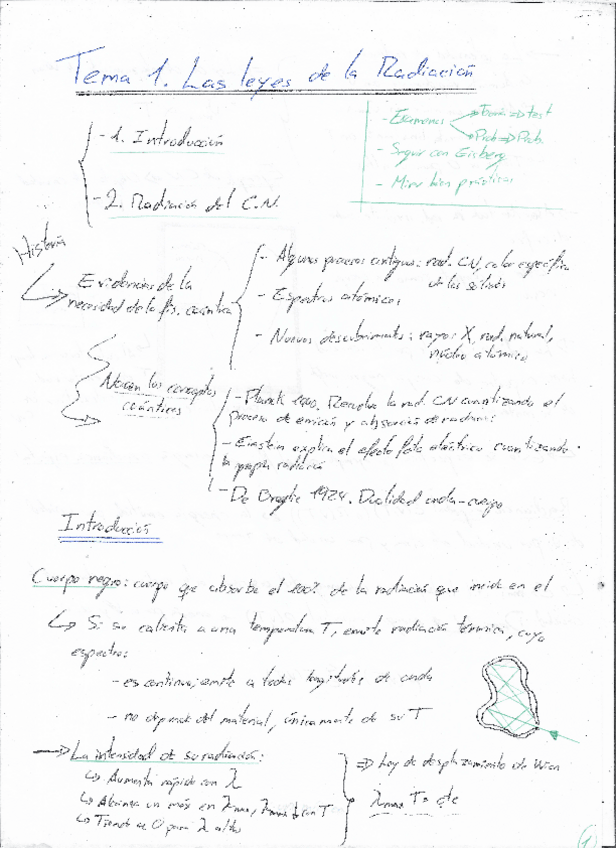 Tema 1. Las leyes de la Radiación
- 1. Introducción
- 2. Radiación del C.N.
- Examenes → Teoría ⇒ test
→ Prob ⇒ Prob.
- Seguir con Eisberg
- Mirar bien prácticas
Historia
Evidencias de la
necesidad de la fís. cuántica
- Algunos procesos antiguos: rad. CN, calor específico
de los sólidos
- Espectros atómicos
- Nuevos descubrimientos: rayos X, rad. natural,
núcleo atómico
Nacen los conceptos
cuánticos
- Planck 1900. Resuelve la rad. CN cuantizando el
proceso de emisión y absorción de radiación
- Einstein explica el efecto fotoeléctrico cuantizando
la propia radiación
- De Broglie 1924. Dualidad onda-cuerpo
Introducción
Cuerpo negro: cuerpo que absorbe el 100% de la radiación que incide en el
↳ Si se calienta a una temperatura T, emite radiación térmica, cuyo
espectro:
- es continuo; emite a todas longitudes de onda
- no depende del material, únicamente de su T
→ La intensidad de su radiación:
↳ Aumenta rápido con λ
↳ Alcanza un máx en λmax, λmax ↓ con T
↳ Tiende a 0 para λ altos
⇒ Ley de desplazamiento de Wien
λmax T = cte
1